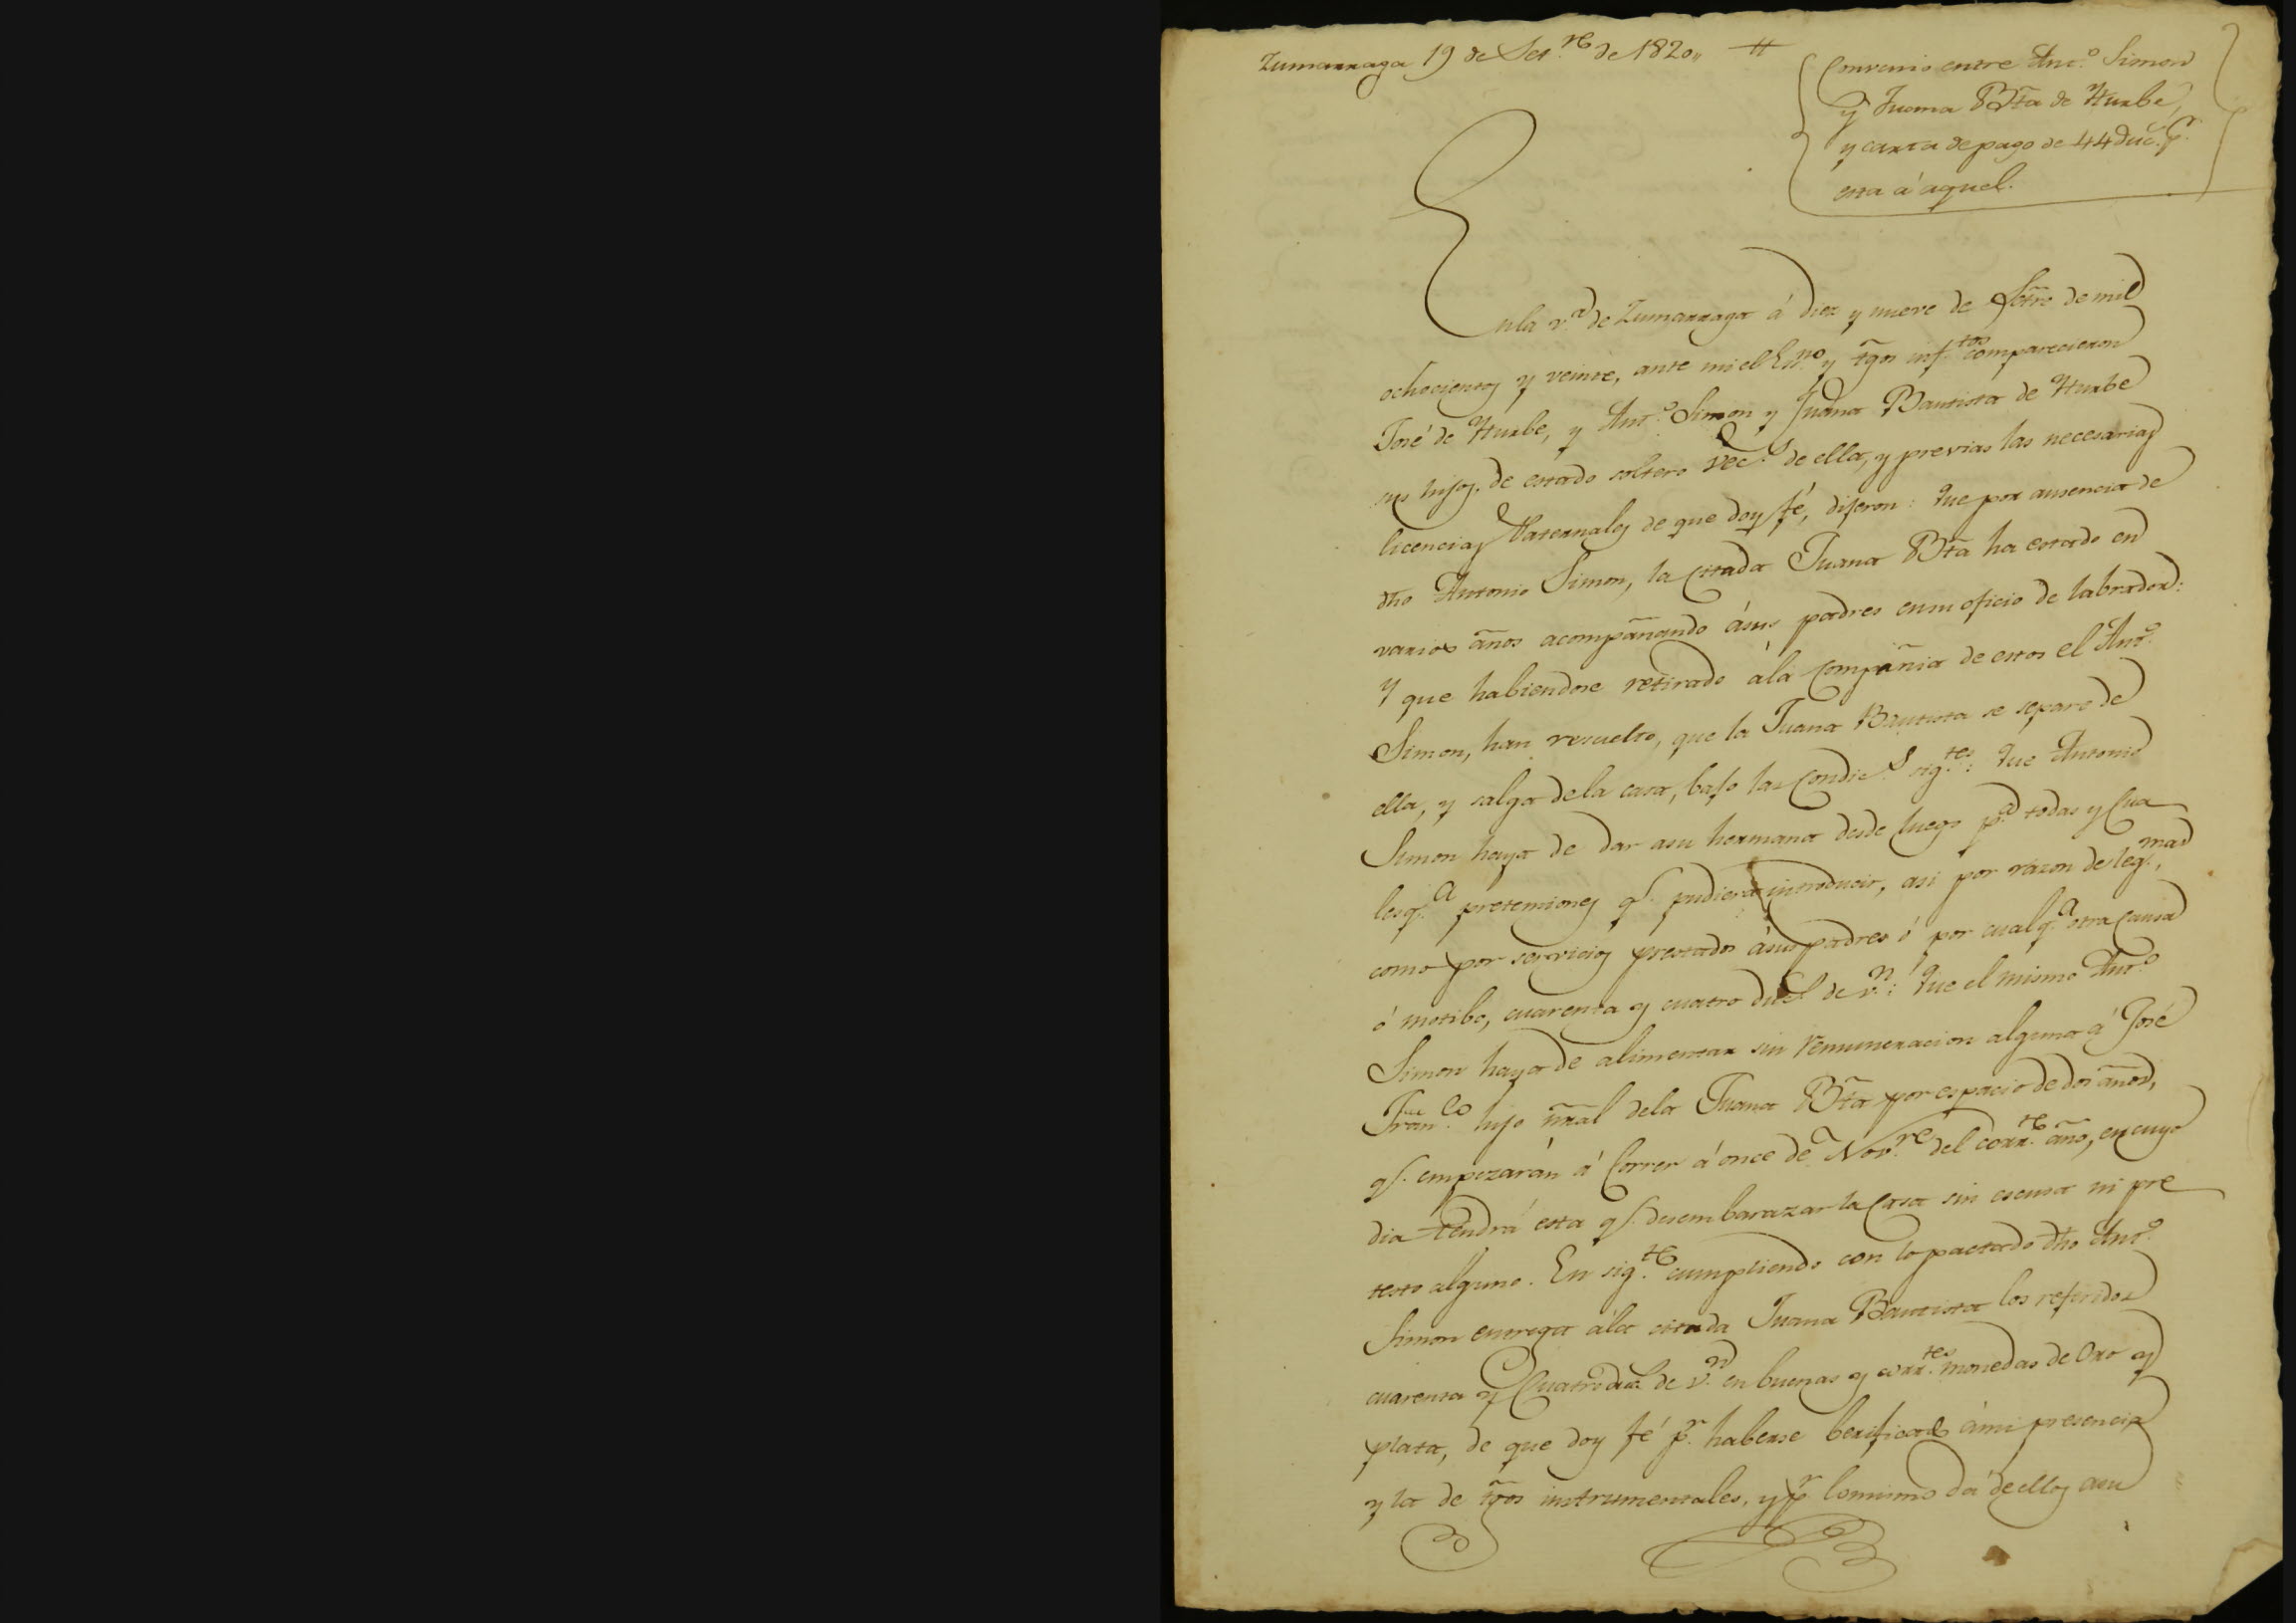 Zumarraga 19 de Set.re de 1820,, #
Convenio entre Ant.o Simon
y Juana Bta de Yturbe,
y carta de pago de 44 duc.s p.r
esta á aquel.
Enla v.a de Zumarraga á diez y nueve de Setre de mil
ochocientos y veinte, ante mi el Esno y tgos inf.tos comparecieron
José de Yturbe, y Ant.o Simon y Juana Bautista de Yturbe
sus hijos, de estado soltero vec.s de ella, y previas las necesarias
licencias Paternales de que doy fé, dijeron: Que por ausencia de
dho Antonio Simon, la citada Juana Bta ha estado en
varios años acompañando ásus padres ensu oficio de labrador:
Y que habiendose retirado ála compañia de estos el Ant.o
Simon, han resuelto, que la Juana Bautista se separe de
ella, y salga dela casa, bajo las condic.s sig.tes: Que Antonio
Simon haya de dar asu hermana desde luego p.a todas y cua
lesq.a pretensiones q.e pudiera introducir, asi por razon de leg.mas,
como por servicios prestados ásus padres ó por cualq.a otra causa
ó motibo, cuarenta y cuatro duc.s de v.n: Que el mismo Ant.o
Simon haya de alimentar sin remuneracion alguna á José
Fran.co hijo nral dela Juana Bta por espacio de dos años,
q.e empezarán á correr á once de Nov.re del corr.te año, en cuyo
dia tendrá esta q.e desembarazar la casa sin escusa ni pre
testo alguno. En sig.te cumpliendo con lo pactado dho Ant.o
Simon entrega ála citada Juana Bautista los referidos
cuarenta y cuatro duc.s de v.n en buenas y corr.tes monedas de Oro y
plata, de que doy fé p.r haberse berificado ámi presencia
y la de tgos instrumentales, y p.r lo mismo dá de ellos asu